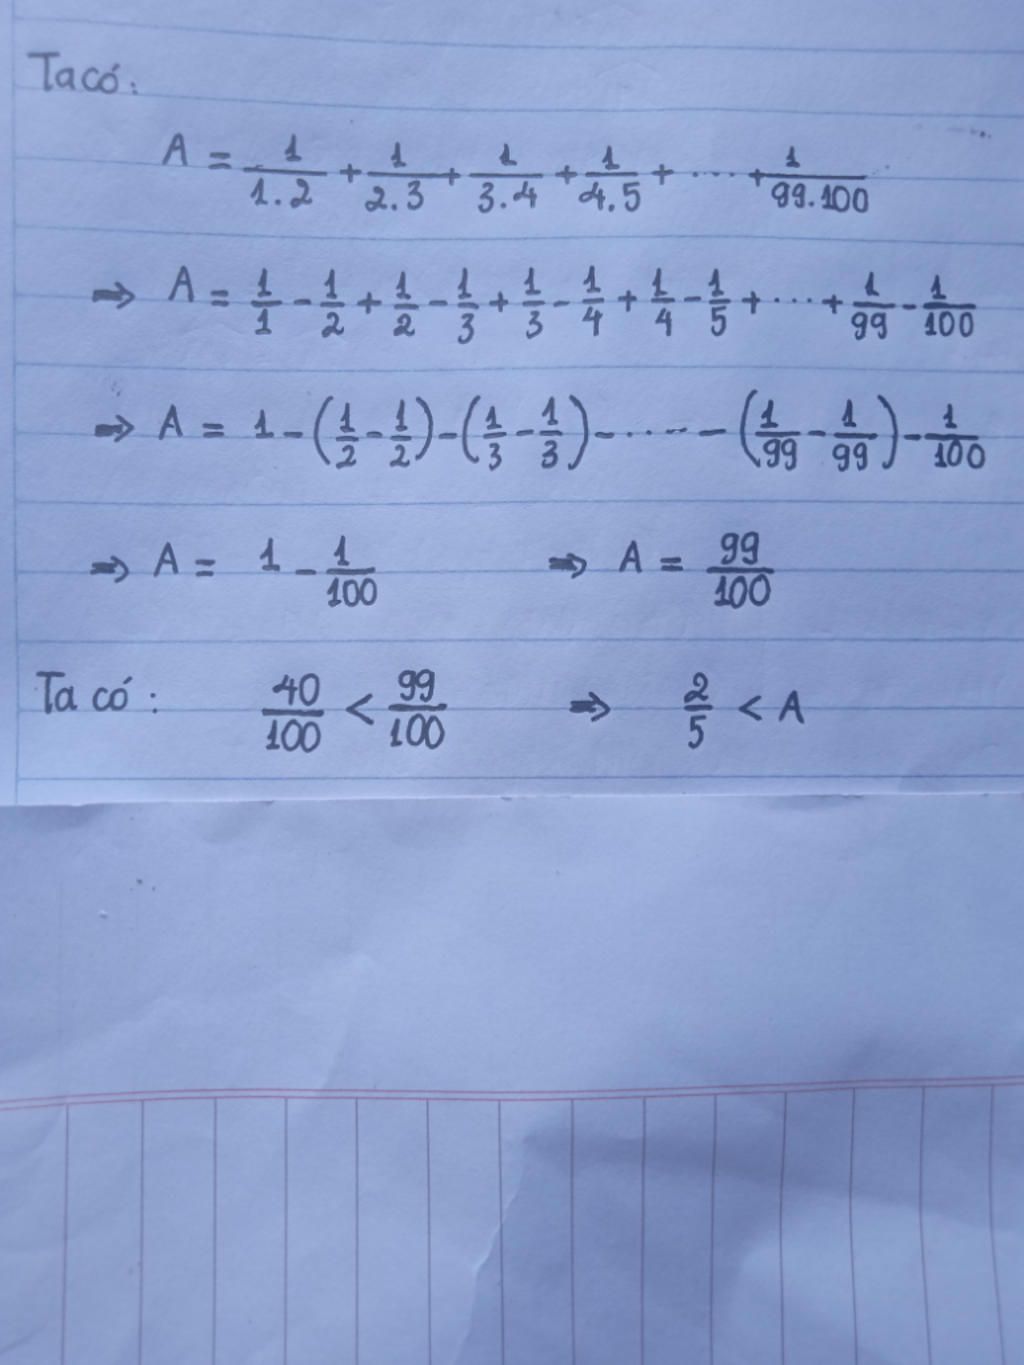 Ta có:
A = 1/1.2 + 1/2.3 + 1/3.4 + 1/4.5 + ..... + 1/99.100
⇒ A = 1/1 - 1/2 + 1/2 - 1/3 + 1/3 - 1/4 + 1/4 - 1/5 + ... + 1/99 - 1/100
⇒ A = 1 - (1/2 - 1/2) - (1/3 - 1/3) - ..... - (1/99 - 1/99) - 1/100
⇒ A = 1 - 1/100 ⇒ A = 99/100
Ta có: 40/100 < 99/100 ⇒ 2/5 < A